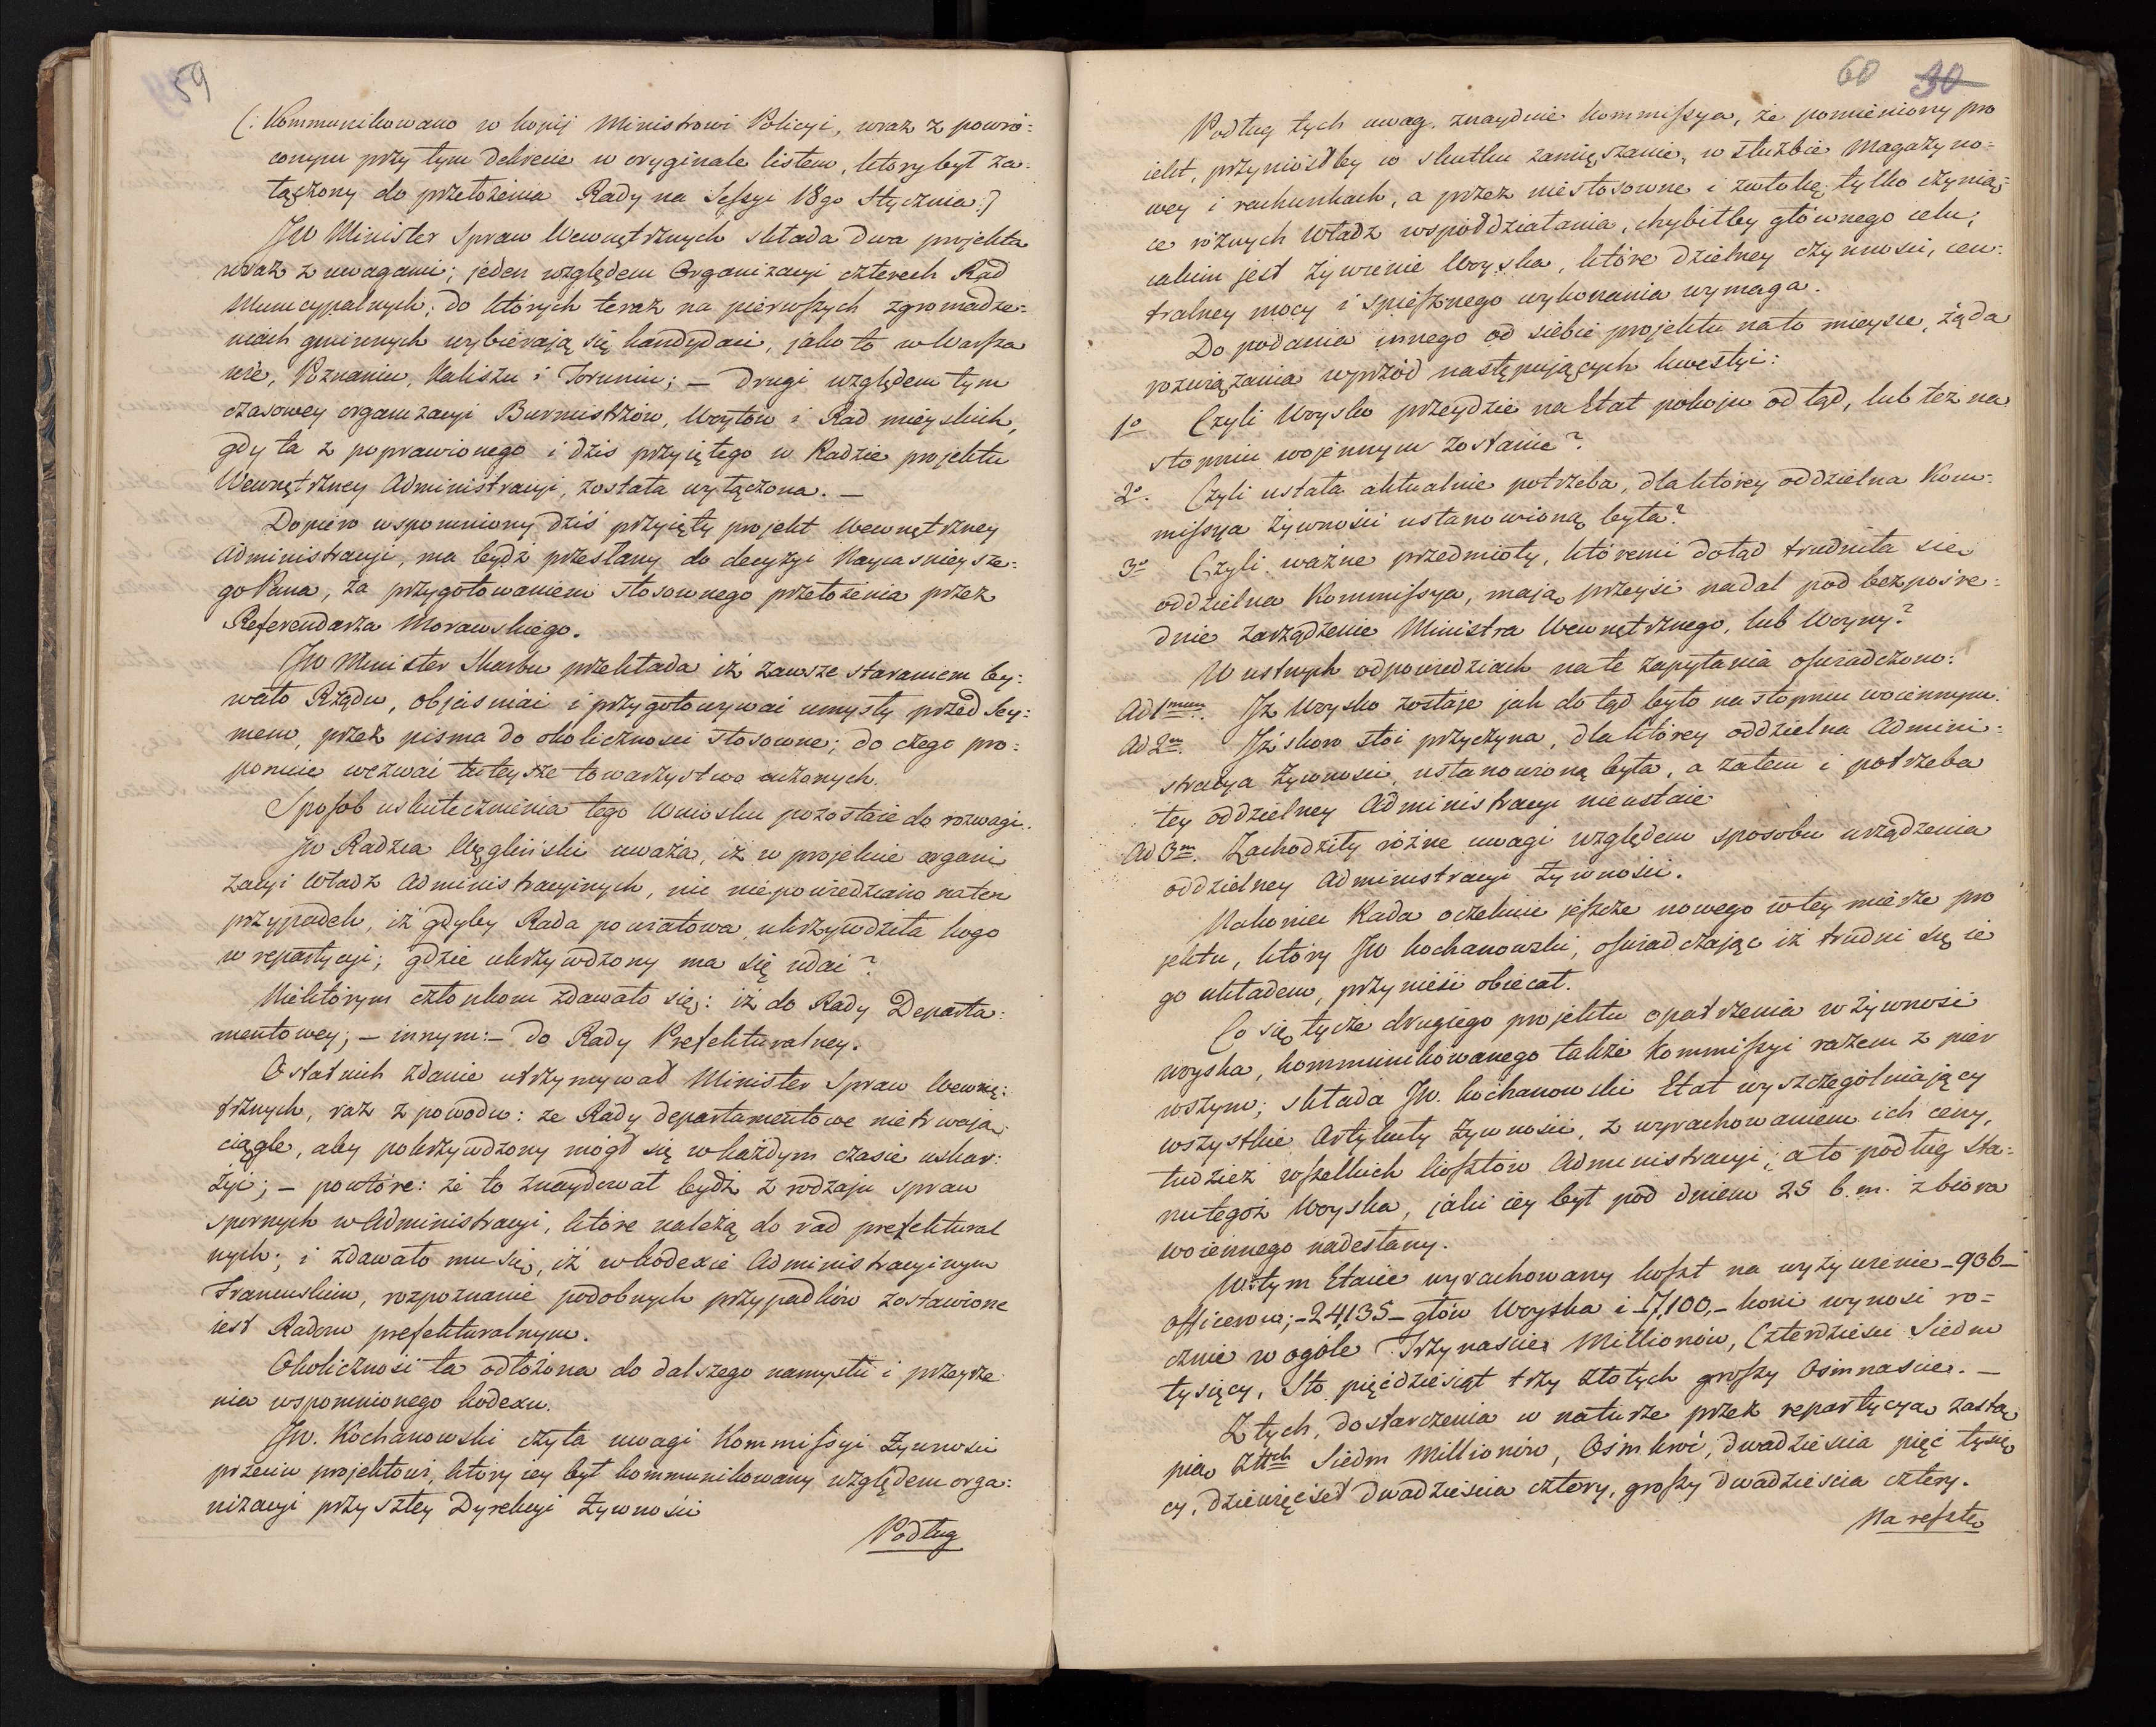 59
(: Kommunikowano w kopij Ministrowi Policyi, wraz z powró=
conym przy tym Dekrecie w oryginale listem, który był za=
łączony do przełożenia Rady na Sessyi 18go Stycznia :)
JW Minister Spraw Wewnętrznych składa dwa projekta
wraz z uwagami; jeden względem Organizacyi czterech Rad
Municypalnych; do których teraz na pierwszych zgromadze=
niach gminnych wybierają się kandydaci, jako to w Warsza
wie, Poznaniu, Kaliszu i Toruniu; — Drugi względem tym
czasowey organizacyi Burmistrzów, Woytów i Rad mieyskich,
gdy ta z poprawionego i dziś przyiętego w Radzie projektu
Wewnętrzney Administracyi, została wyłączona. —
Dopiero wspomniony dziś przyięty projekt Wewnętrzney
Administracyi, ma bydź przesłany do decyzyi Nayiaśnieysze=
go Pana, za przygotowaniem stosownego przełożenia przez
Referendarza Morawskiego.
JW Minister Skarbu przekłada iż zawsze staraniem by=
wało Rządu, objaśniać i przygotowywać umysły przed Sey=
mem, przez pisma do okoliczności stosowne; do czego pro=
ponuie wezwać tuteysze towarzystwo uczonych.
Sposob uskutecznienia tego wniosku pozostaie do rozwagi.
JW Radzca Węgleński uważa, iż w projekcie organi
zacyi Władz Administracyinych, nic niepowiedziano na ten
przypadek, iż gdyby Rada powiatowa, ukrzywdziła kogo
w repartycyi; gdzie ukrzywdzony ma się udać?
Niektórym członkom zdawało się: iż do Rady Departa=
mentowey; — innym: — do Rady Prefekturalney.
Ostatnich zdanie utrzymywał Minister Spraw Wewnę=
trznych, raz z powodu: że Rady departamentowe nie trwają
ciągle, aby pokrzywdzony mógł się w każdym czasie uskar=
żyć; — powtóre: że to znaydował bydź z rodzaju spraw
spornych w Administracyi, które należą do rad prefektural
nych; i zdawało mu się, iż w kodexie Administracyinym
Francuskim, rozpoznanie podobnych przypadków zostawione
iest Radom prefekturalnym.
Okoliczność ta odłożona do dalszego namysłu i przeyrze
nia wspomnionego kodexu.
JW. Kochanowski czyta uwagi Kommissyi Żywności
przeciw projektowi, który iey był kommunikowany względem orga=
nizacyi przyszłey Dyrekcyi Żywności
Podług
60 30
Podług tych uwag, znayduie Kommissya, że pomieniony pro
iekt, przyniosłby w skutku zamięszanie, w służbie Magazyno=
wey i rachunkach, a przez niestosowne i zwłokę tylko czynią=
ce różnych Władz współdziałania, chybiłby głównego celu;
iakim jest żywienie Woyska, które dzielney czynności, cen=
tralney mocy i spiesznego wykonania wymaga.
Do podania innego od siebie projektu na to mieysce, żąda
rozwiązania wprzód następujących kwestyi:
1o Czyli Woysko przeydzie na Etat pokoju odtąd, lub też na
stopniu wojennym zostanie?
2o. Czyli ustała aktualnie potrzeba, dla którey oddzielna Kom=
missya Żywności ustanowioną była?
3o Czyli ważne przedmioty, któremi dotąd trudniła się
oddzielna Kommissya, mają przeyść nadal pod bezpośre=
dnie zarządzenie Ministra Wewnętrznego, lub Woyny?
W ustnych odpowiedziach na te zapytania oświadczono:
Ad 1mum. Iż Woysko zostaje jak dotąd było na stopniu woiennym.
Ad 2m. Iż skoro stoi przyczyna, dla którey oddzielna Admini=
stracya Żywności ustanowioną była, a zatem i potrzeba
tey oddzielney Administracyi nieustaie
Ad 3m. Zachodziły różne uwagi względem sposobu urządzenia
oddzielney Administracyi Żywności.
Nakoniec Rada oczekuie jeszcze nowego w tey mierze pro
jektu, który JW Kochanowski, oświadczając iż trudni się ie
go układem, przynieść obiecał.
Co się tycze drugiego projektu opatrzenia w żywność
woyska, kommunikowanego także Kommissyi razem z pier
wszym; składa JW. Kochanowski Etat wyszczególniający
wszystkie Artykuły Żywności, z wyrachowaniem ich ceny,
tudzież wszelkich kosztów Administracyi; a to podług sta=
nu tegoż Woyska, jaki iey był pod dniem 25 b. m. z biora
woiennego nadesłany.
W tym Etacie wyrachowany koszt na wyżywienie — 936 —
officerów; — 24,135 — głów Woyska i — 7,100, — koni wynosi ro=
cznie w ogóle Trzynaście Millionów, Czterdzieści Siedm
tysięcy, Sto pięćdziesiąt trzy złotych groszy Ośmnaście. —
Z tych, dostarczenia w naturze przez repartycyą zastą
pią złtch Siedm Millionów, Ośmkroć, dwadzieścia pięć tysię
cy, dziewięćset dwadzieścia cztery, groszy dwadzieścia cztery.
Na resztę